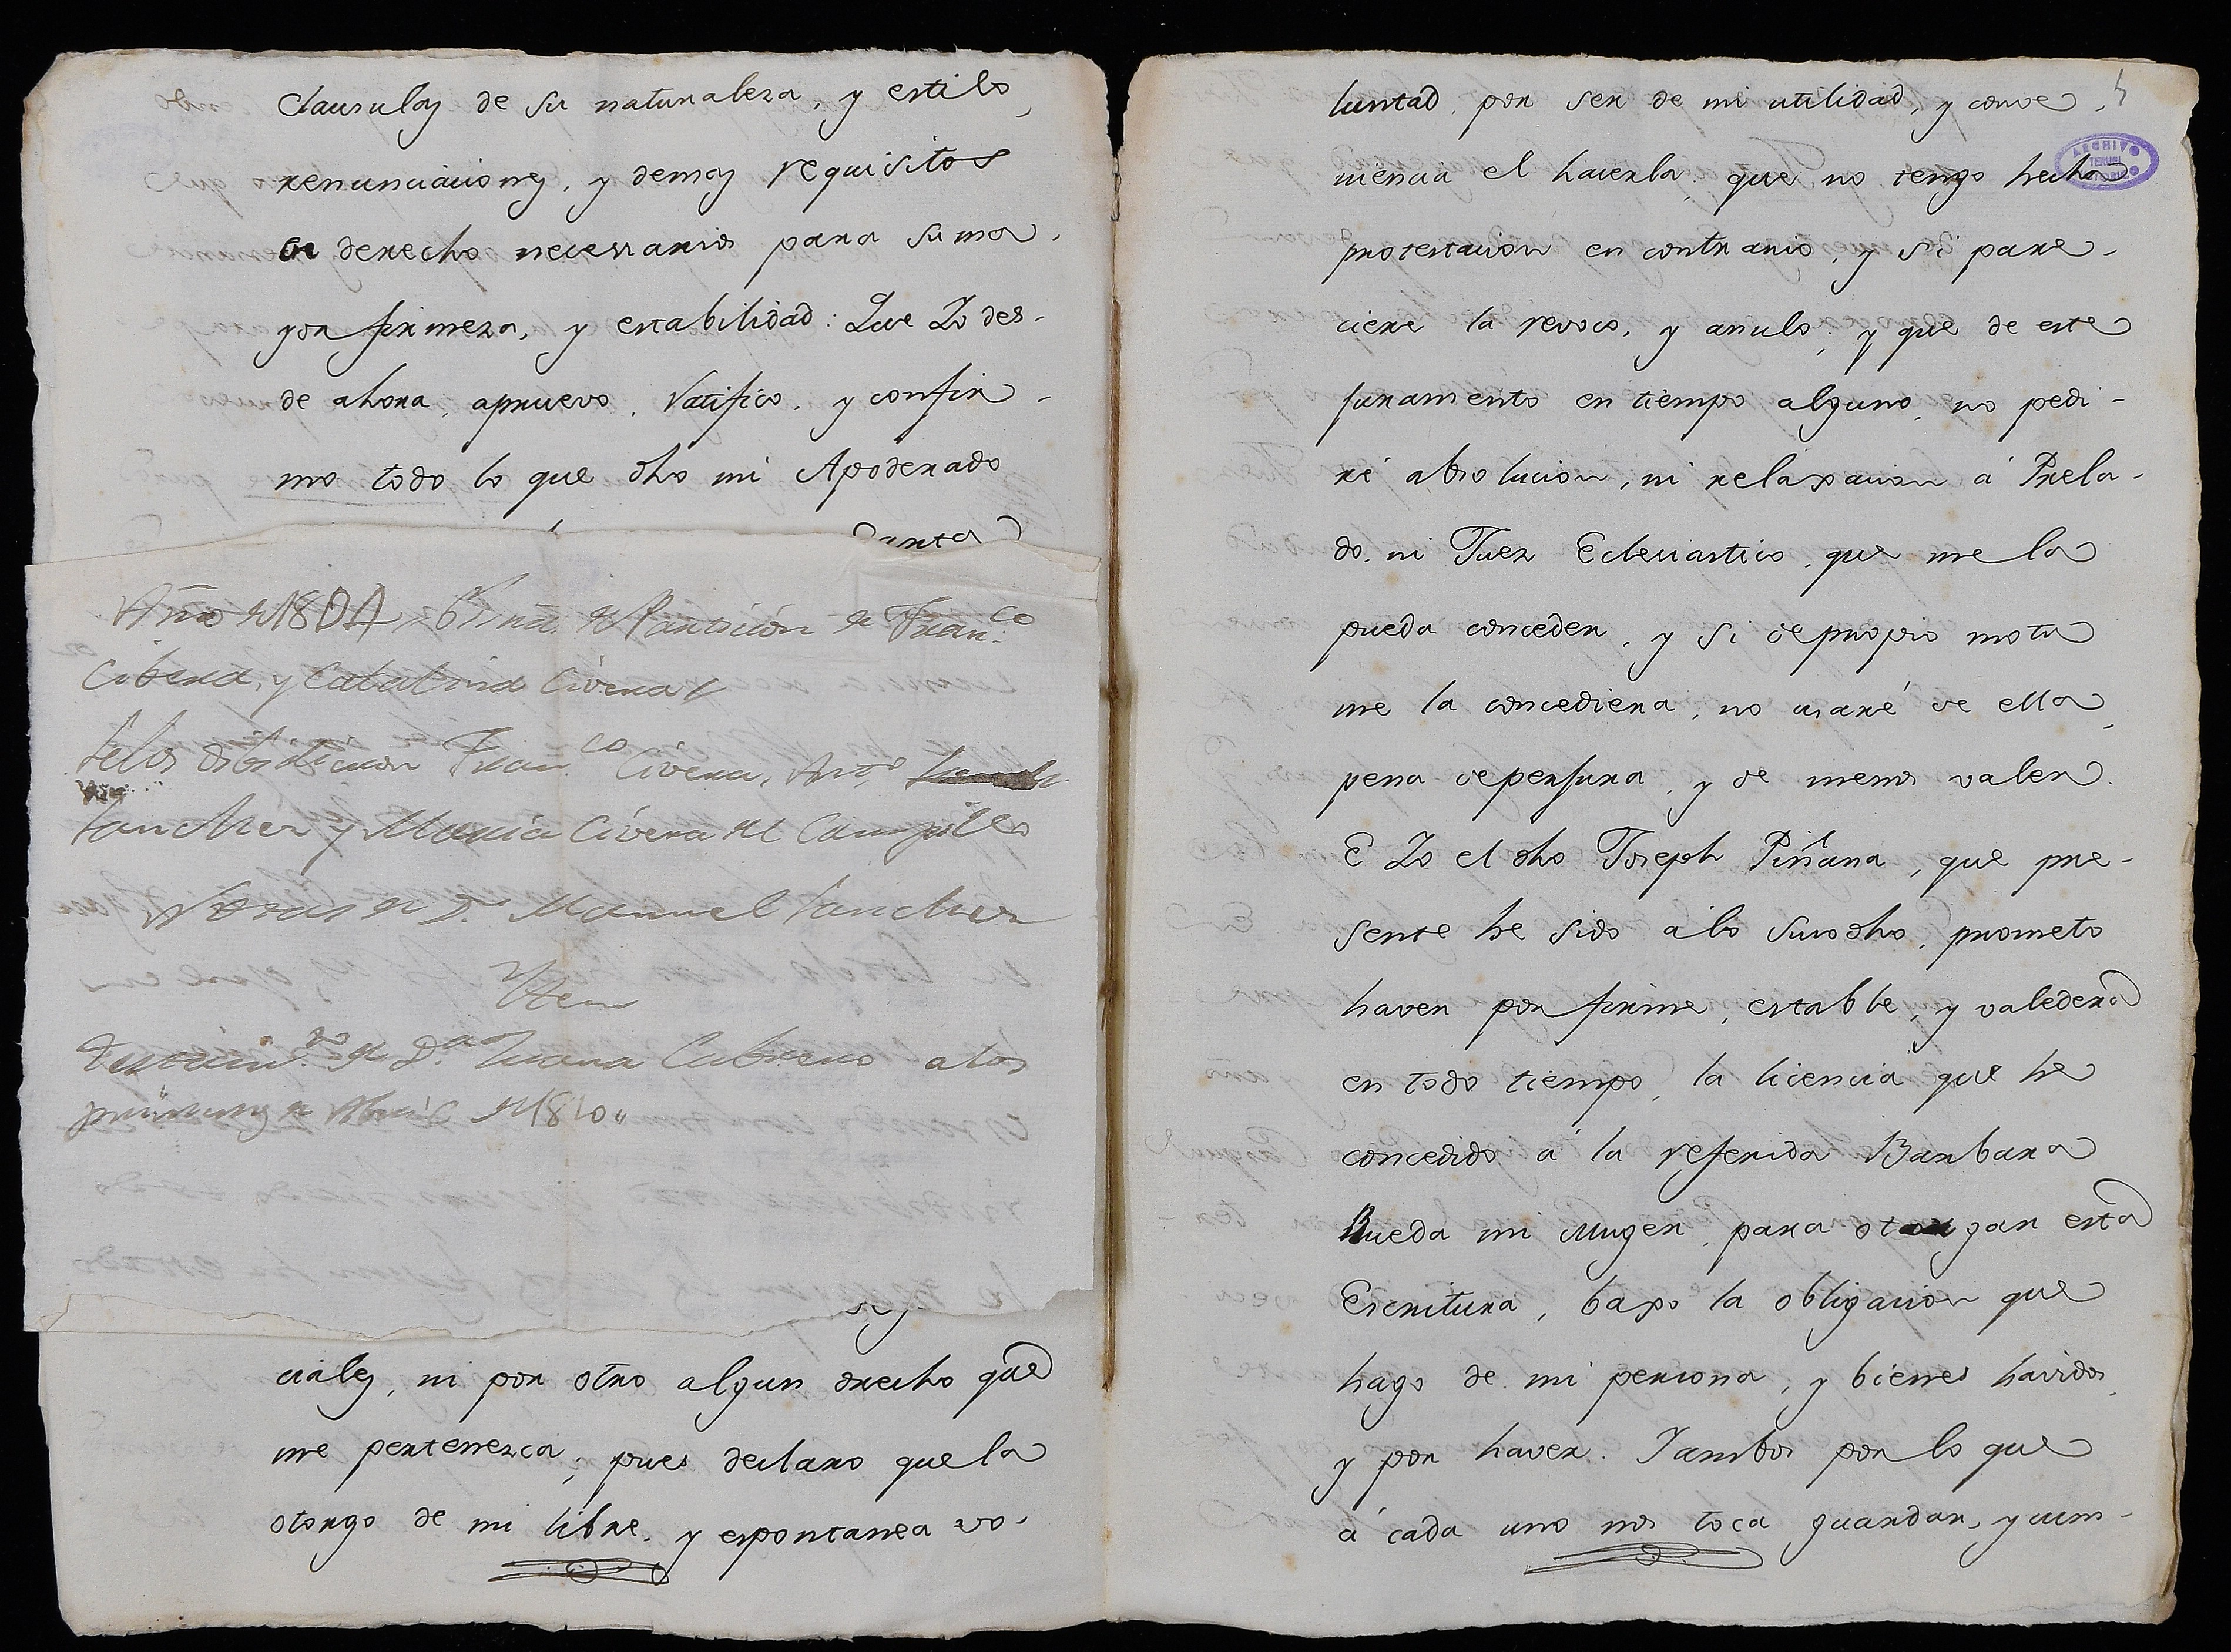 Clausulas de su naturaleza, y estilo,
renunciaciones, y demas requisitos
de derecho necessarios para su ma-
yor firmeza, y estabilidad: Que Yo des-
de ahora, apruevo, ratifico, y confir-
mo todo lo que dho mi Apoderado
Año de 180
de Particion de Franco
Civera, y Catalina Civera
Franco Civera, Anto
Sanchez y Maria Civera del Campillo
de Dn Manuel Sanchez
Ytem
Testamto de Da Juana Cabrero a los
primeros de Abril de 1810
ciales, ni por otro algun drecho que
me pertenezca; pues declaro que la
otorgo de mi libre, y espontanea vo-
4
luntad, por ser de mi utilidad, y conve-
niencia el hacerla, que no tengo hecha
ARCHIVO
TERUEL
protestacion en contrario, y si pare-
ciere la revoco, y anulo; y que de este
juramento en tiempo alguno, no pedi-
ré absolucion, ni relaxacion á Prela-
do, ni Juez Eclesiastico, que me la
pueda conceder, y si de propio motu
me la concediera, no usaré de ella,
pena de perjura, y de menos valer.
E Yo el dho Joseph Piñana, que pre-
sente he sido á lo susodho, prometo
haver por firme, estable, y valedera
en todo tiempo, la licencia que he
concedido á la referida Barbara
Rueda mi Muger, para otorgar esta
Escritura, baxo la obligacion que
hago de mi persona, y bienes havidos,
y por haver. Y ambos por lo que
á cada uno nos toca guardar, y cum-